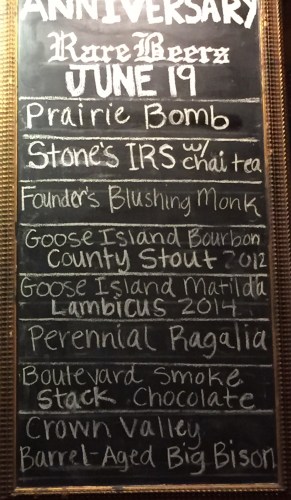 ANNIVERSARY
Rare Beers
JUNE 19
Prairie Bomb
Stone's IRS w/ chai tea
Founder's Blushing Monk
Goose Island Bourbon
County Stout 2012
Goose Island Matilda
Lambicus 2014
Perennial Ragalia
Boulevard Smoke
Stack Chocolate
Crown Valley
Barrel-Aged Big Bison